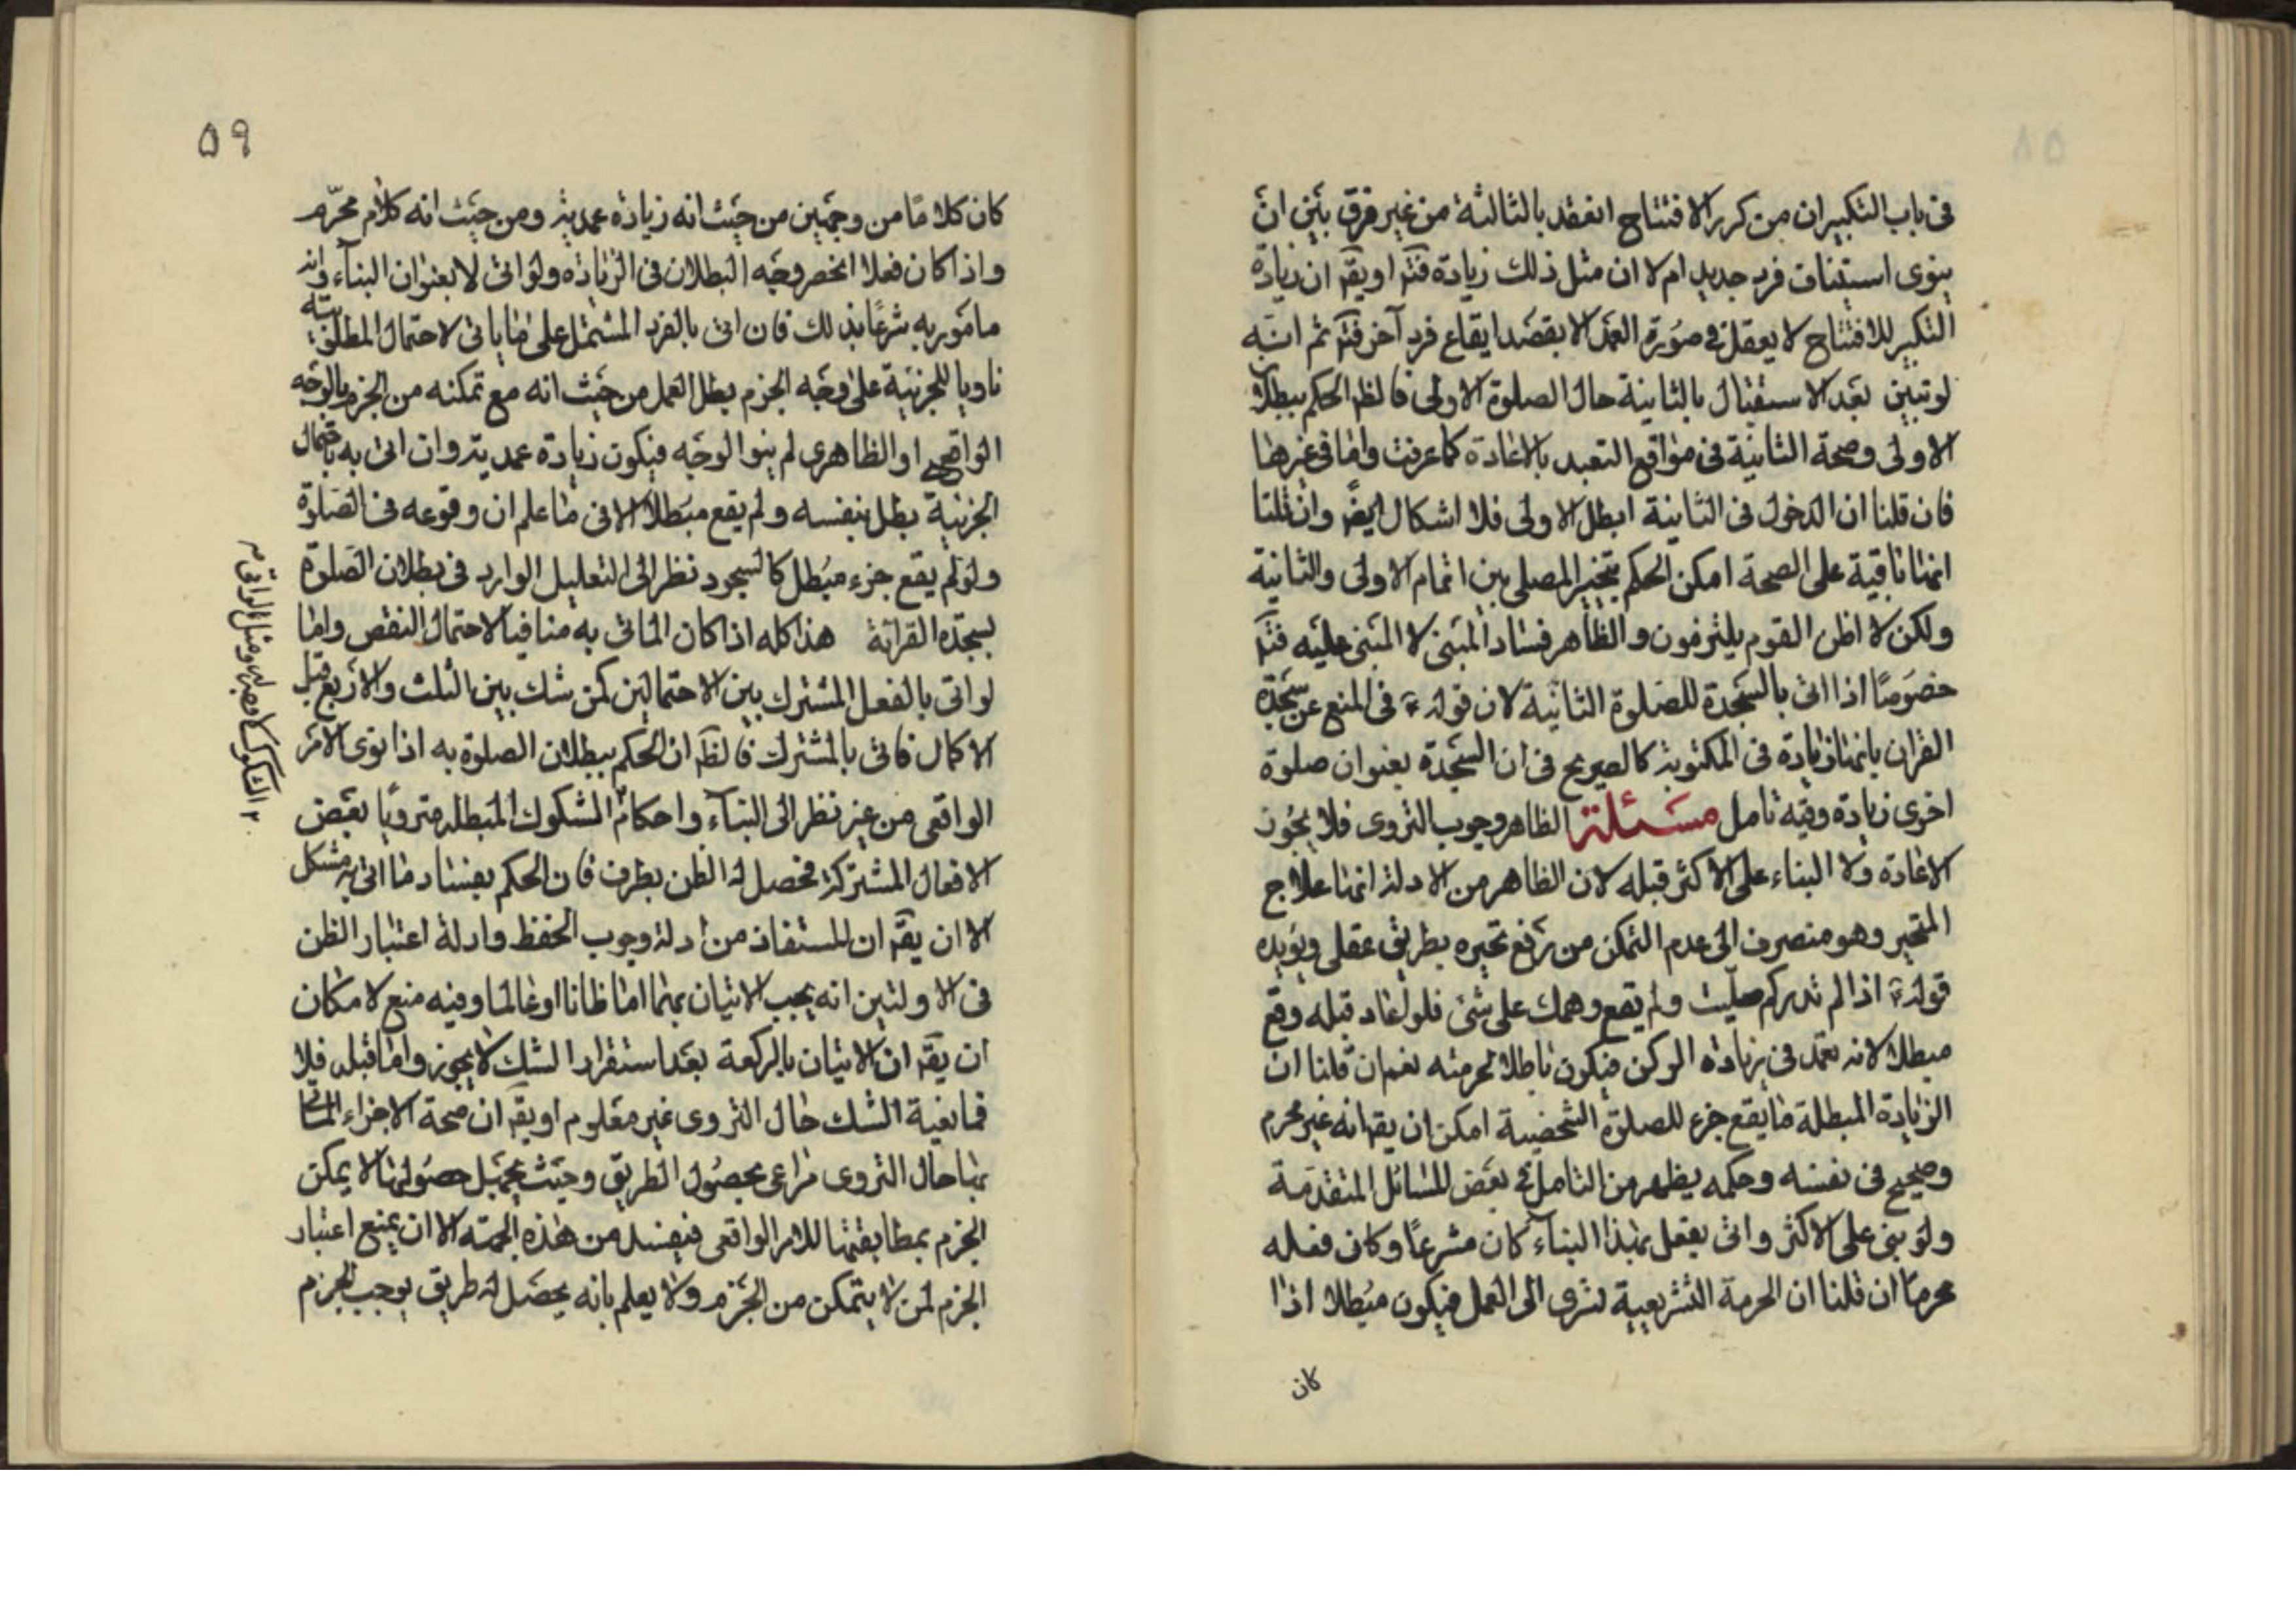 فى باب التكبيران من كرر الافتتاح انعقد بالثالثة من غير فرق بين ان
ينوى استيناف فرد جديد ام لا ان مثل ذلك زيادة فتم او يقم ان زيادة
التكبير للافتتاح لا يعقل فى صورة العمد الا بقصد ايقاع فرد آخر فتم ثم انه
لو تبين بعد الاستقبال بالثانية حال الصلوة الاولى فالظم الحكم ببطلان
الاولى وصحة الثانية فى مواقع التعبد بالاعادة كما عرفت واما فى غيرها
فان قلنا ان الدخول فى الثانية ابطل الاولى فلا اشكال ايضا وان قلنا
انها باقية على الصحة امكن الحكم بتخير المصلى بين اتمام الاولى والثانية
ولكن لا اظن القوم يلتزمون والظاهر فساد المبنى لا المبنى عليه فتم
خصوصا اذا اتى بالسجدة للصلوة الثانية لان قوله ع فى المنع عن سجدة
القران بانها زيادة فى المكتوبة كالصريح فى ان السجدة بعنوان صلوة
اخرى زيادة وفيه تامل مسئلة الظاهر وجوب التروى فلا يجوز
الاعادة ولا البناء على الاكثر قبله لان الظاهر من الادلة انها علاج
المتحير وهو منصرف الى عدم التمكن من رفع تحيره بطريق عقلى ويؤيده
قوله ع اذا لم تدر كم صليت ولم يقع وهمك على شئ فلو اعاد قبله وقع
مبطلا لانه تعمد فى زيادة الركن فيكون باطلا لحرمته نعم ان قلنا ان
الزيادة المبطلة ما يقع جزء للصلوة الشخصية امكن ان يقم انه غير محرم
وصحيح فى نفسه وحكمه يظهر من التامل فى بعض المسائل المتقدمة
ولو بنى على الاكثر واتى بفعل بهذا البناء كان مشرعا وكان فعله
محرما ان قلنا ان الحرمة التشريعية تسرى الى العمل فيكون مبطلا اذا
كان
٥٩
كان كلاما من وجهين من حيث انه زيادة عمدية ومن حيث انه كلام محرم
واذا كان فعلا انحصر وجه البطلان فى الزيادة ولو اتى لا بعنوان البناء وانه
مامور به شرعا بذلك فان اتى بالفرد المشتمل على ما ياتى لاحتمال المطلق
ناويا للجزئية على وجه الجزم بطل العمل من حيث انه مع تمكنه من الجزم بالوجه
الواقعى او الظاهرى لم ينو الوجه فيكون زيادة عمدية وان اتى به باحتمال
الجزئية بطل بنفسه ولم يقع مبطلا الا فى ما علم ان وقوعه فى الصلوة
ولو لم يقع جزء مبطل كالسجود نظر الى التعليل الوارد فى بطلان الصلوة
بسجدة القرائة هذا كله اذا كان الماتى به منافيا لاحتمال النقص واما
لو اتى بالفعل المشترك بين الاحتمالين كمن شك بين الثلث والاربع قبل
الاكمال فاتى بالمشترك فالظم ان الحكم ببطلان الصلوة به اذا نوى الامر
الواقعى من غير نظر الى البناء واحكام الشكوك المبطلة متروّيا بعض
الافعال المشتركة فحصل له الظن بطرف فان الحكم بفساد ما اتى به مشكل
الا ان يقم ان المستفاد من ادلة وجوب الحفظ وادلة اعتبار الظن
فى الاولتين انه يجب الاتيان بهما اما ظانا او عالما وفيه منع لامكان
ان يقم ان الاتيان بالركعة بعد استقرار الشك لا يجوز واما قبله فلا
فمانعية الشك حال التروى غير معلوم او يقم ان صحة الاجزاء الماتى
بها حال التروى مراعى بحصول الطريق وحيث يحتمل حصولها لا يمكن
الجزم بمطابقتها للامر الواقعى فيفسد من هذه الجهة الا ان يمنع اعتبار
الجزم لمن لا يتمكن من الجزم ولا يعلم بانه يحصل له طريق يوجب الجزم